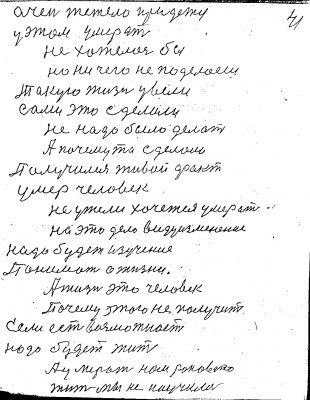 очен тяжело придету
у этом умерат
не хотелося бы
но ни чего не поделаеш
Такую жизн увели
сами это сделали
не надо было делат
А почемута сделали
Получился живой факт
умер человек
не ужели хочется умерат
на это дело видуизменение
надо будет изучение
Понимат о жизни.
А жизн это человек
Почему этого не получит
Если ест возможност
надо будет жит
А умерат нам
жит мы не научили
4